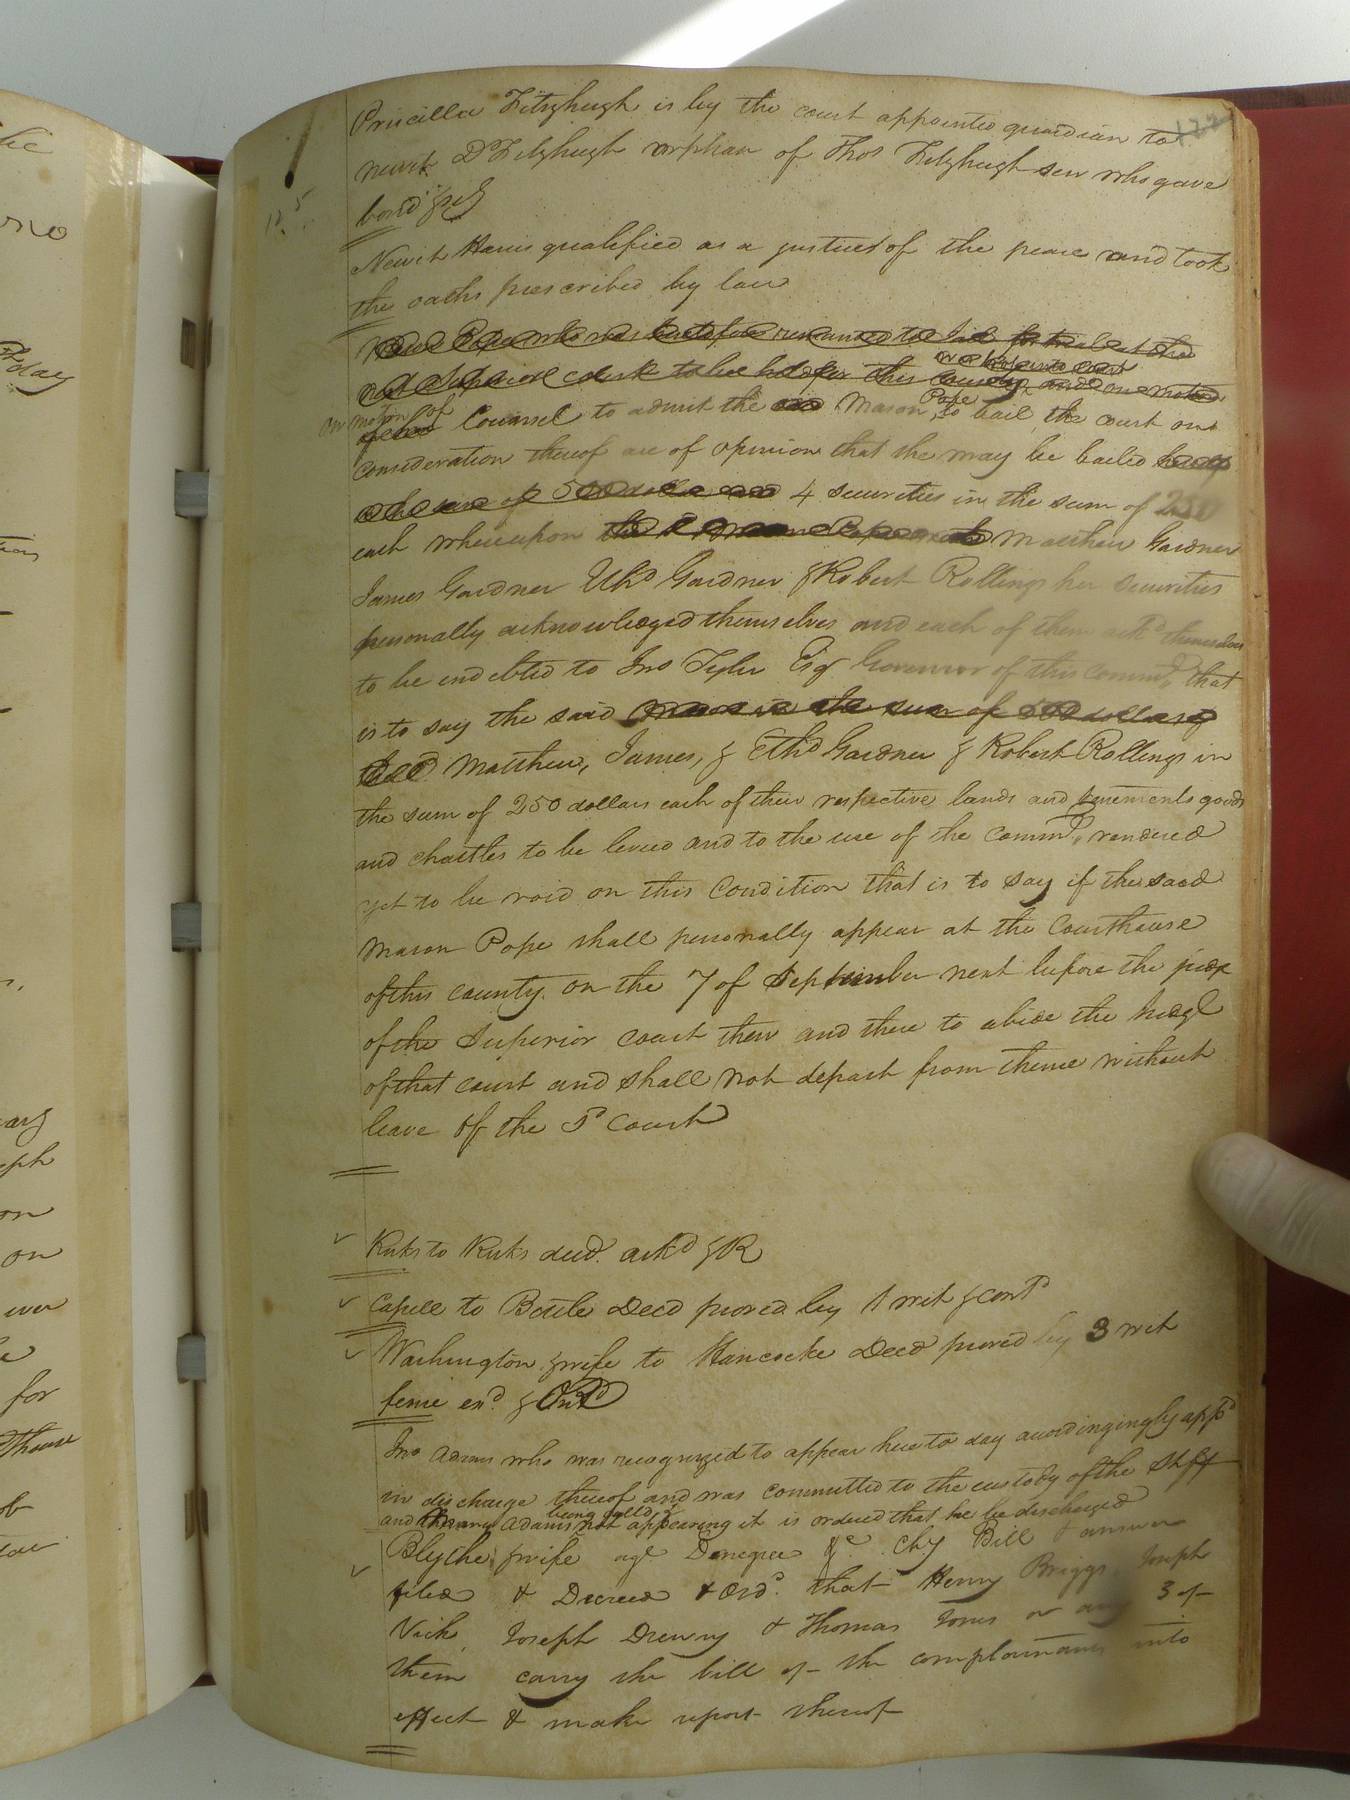 Priscilla Fitzhugh is by the court appointed guardian to
Newit D Fitzhugh orphan of Thos Fitzhugh sen who gave
bond &c
Newit Haris qualified as a justice of the peace and took
the oaths prescribed by law
Pope who was heretofore remanded to Jail for trial at the
was bro't into court
next Superior court to be held for this county and on motion
on motion of Pope
of her Counsel to admit the said Mason to bail, the court on
consideration thereof are of opinion that she may be bailed
in the sum of 500 dollars and 4 securities in the sum of 250
each whereupon the Mason Pope Matthew Gardner
James Gardner Ethd Gardner & Robert Rollings her securities
personally acknowledged themselves and each of them ackd themselves
to be indebted to Jno Tyler Esqr Governor of this Commth that
is to say the said Mason in the sum of 500 dollars &
Matthew, James, & Ethd Gardner & Robert Rollings in
the sum of 250 dollars each of their respective lands and tenements goods
and chattles to be levied and to the use of the Commth rendered
yet to be void on this Condition that is to say if the said
Mason Pope shall personally appear at the Courthouse
of this county on the 7 of September next before the judge
of the Superior court then and there to abide the Judgt
of that court and shall not depart from thence without
leave of the sd Court
Kirks to Kirks deed. ackd & R
Capell to Battle Deed proved by 1 wit & contd
Washington & wife to Hancocke Deed proved by 3 wit
feme exd. & Ord
Jno Adams who was recognized to appear here to day accordingly appd
in discharge thereof and was committed to the custody of the Shff
being calld
and Adams not appearing it is ordered that he be discharged
Blythe & wife agt &c. Chy Bill & answer
filed & Decreed & Ord. that Henry Briggs, Joseph
Vick, Joseph Drewry & Thomas Jones or any 3 of
them carry the bill of the complainants into
effect & make report thereof